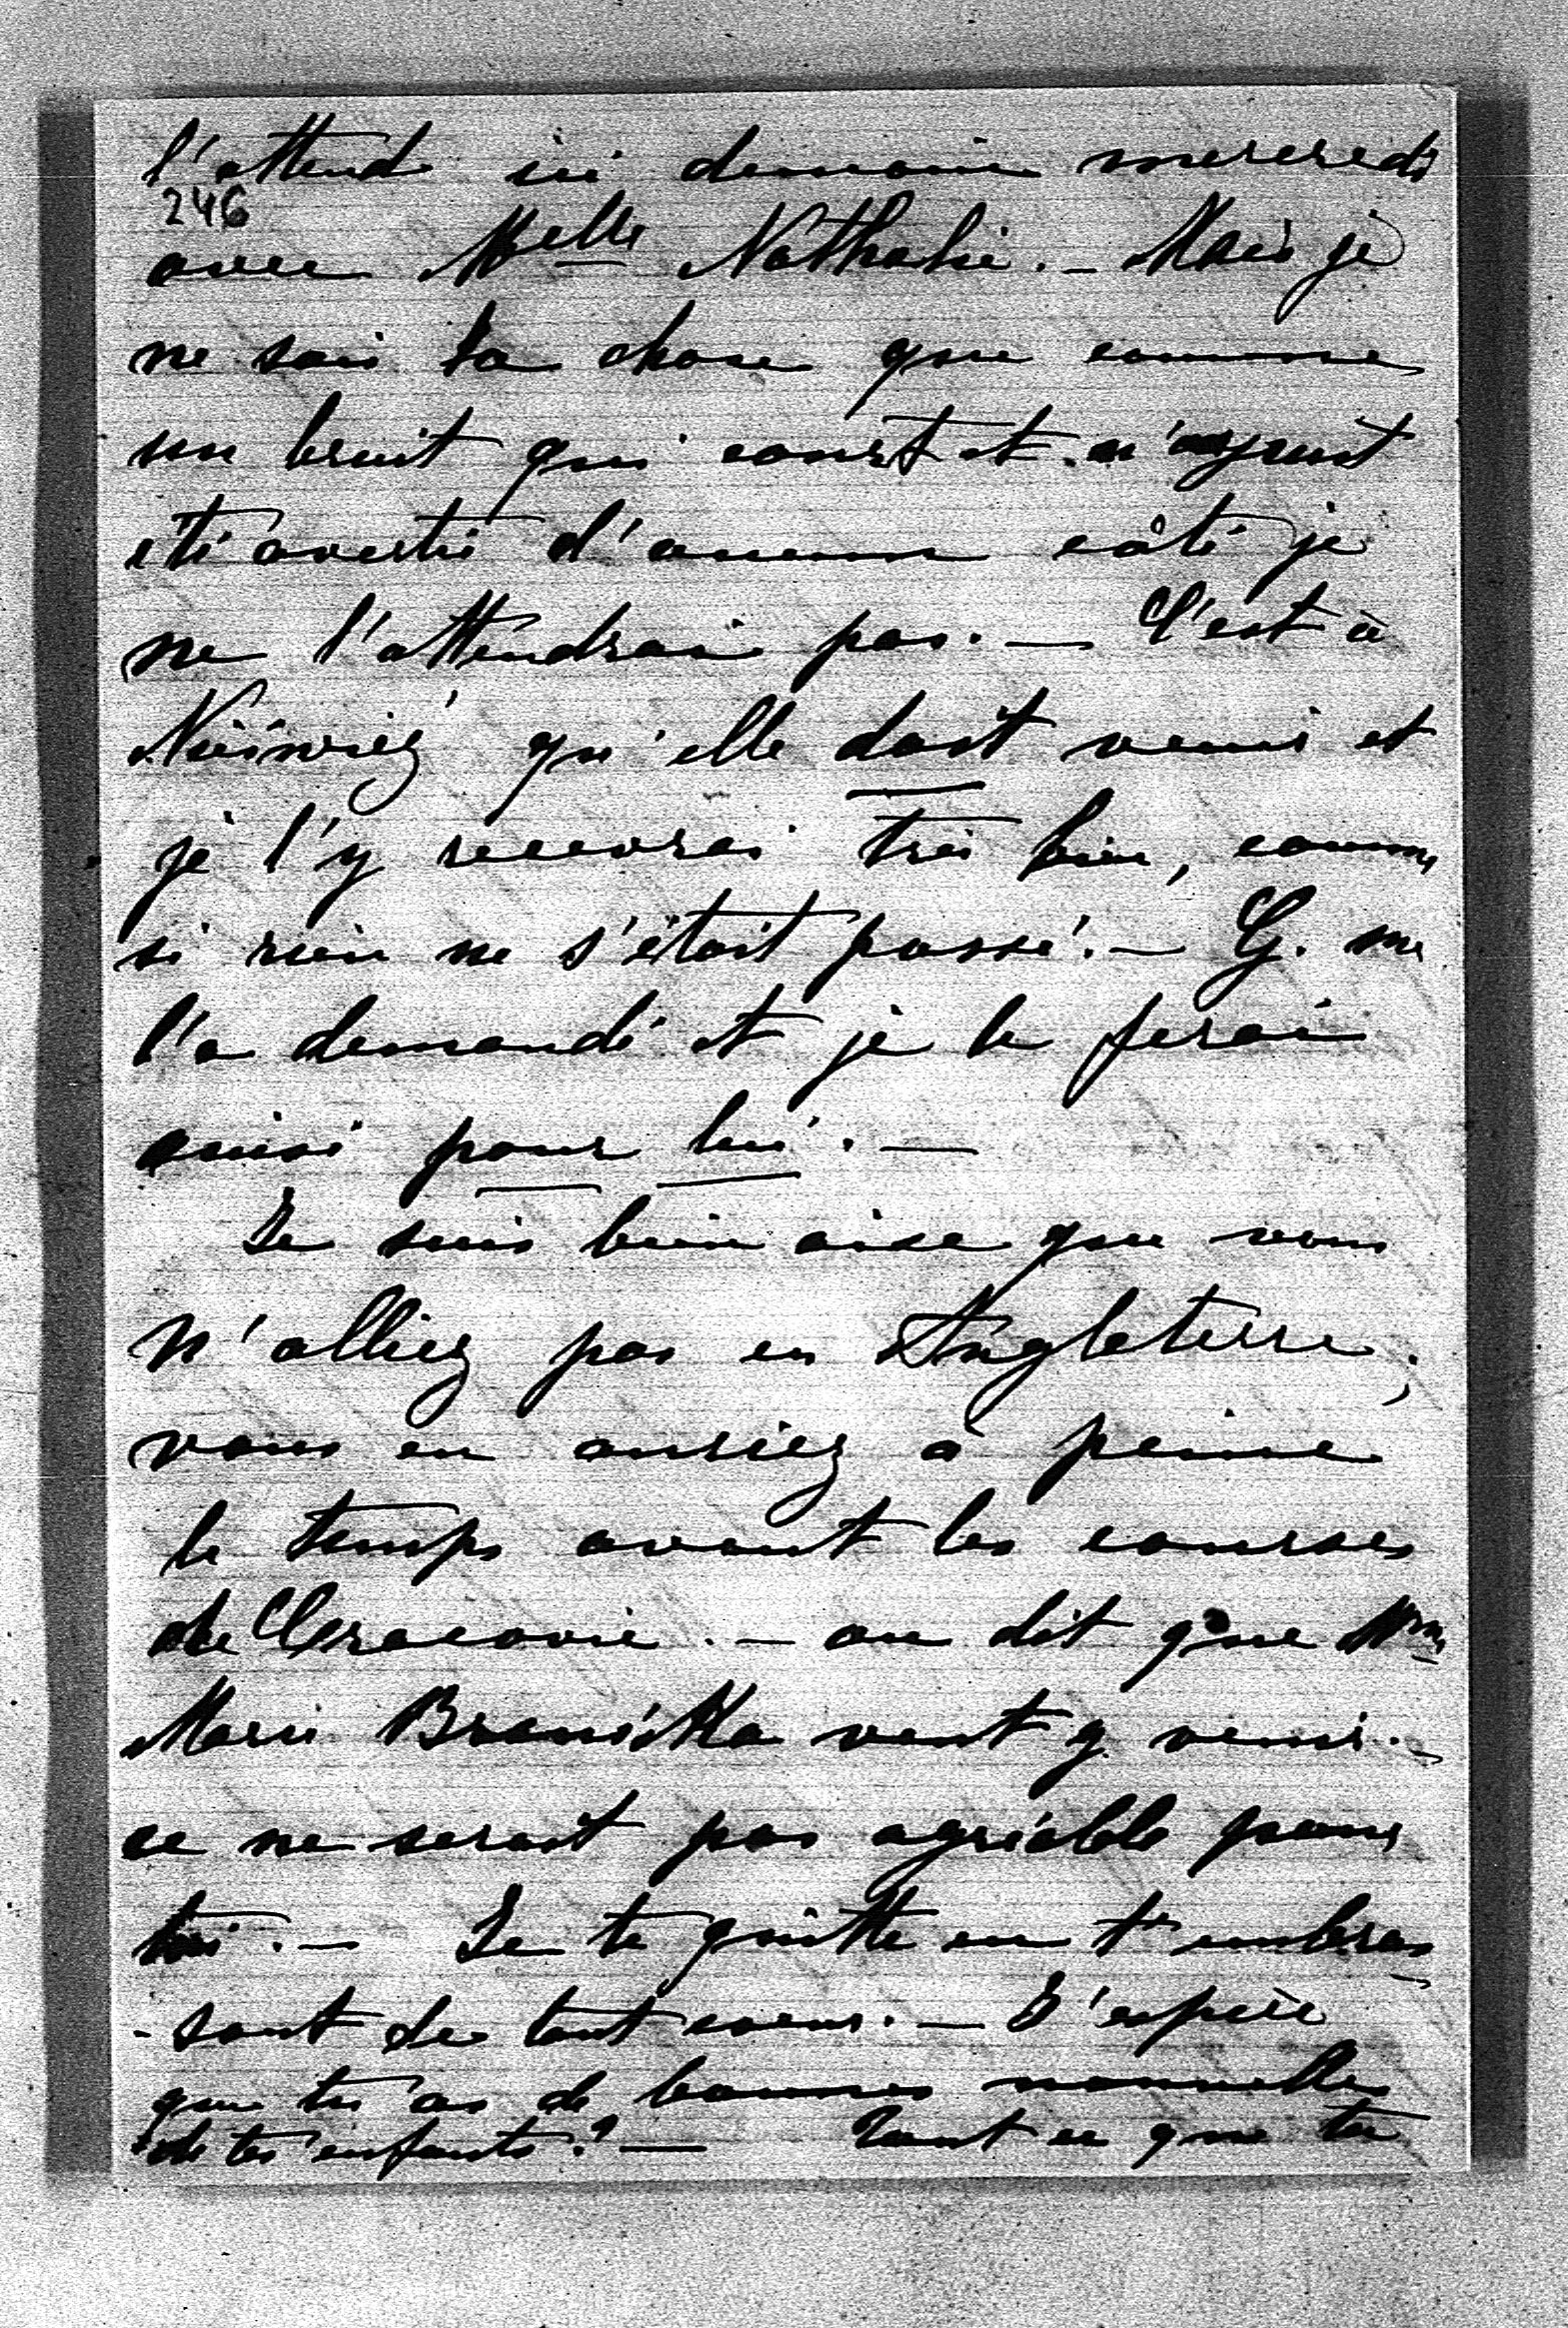 l'attend ici demain mercredi
246
avec Melle Nathalie. — Mais je
ne sais la chose que comme
un bruit qui court et n'ayant
été avertie d'aucun côté je
ne l'attendrai pas. — C'est à
Nieśwież qu'elle doit venir et
je l'y recevrai très bien, comme
si rien ne s'était passé. — G. me
l'a demandé et je le ferai
ainsi pour lui. —
Je suis bien aise que vous
n'alliez pas en Angleterre;
vous en auriez à peine
le temps avant les courses
de Cracovie. — on dit que Mme
Marie Branicka veut y venir. —
ce ne serait pas agréable pour
toi. — Je te quitte en t'embras
-sant de tout coeur. — J'espère
que tu as de bonnes nouvelles
de tes enfants? — Tout ce que tu